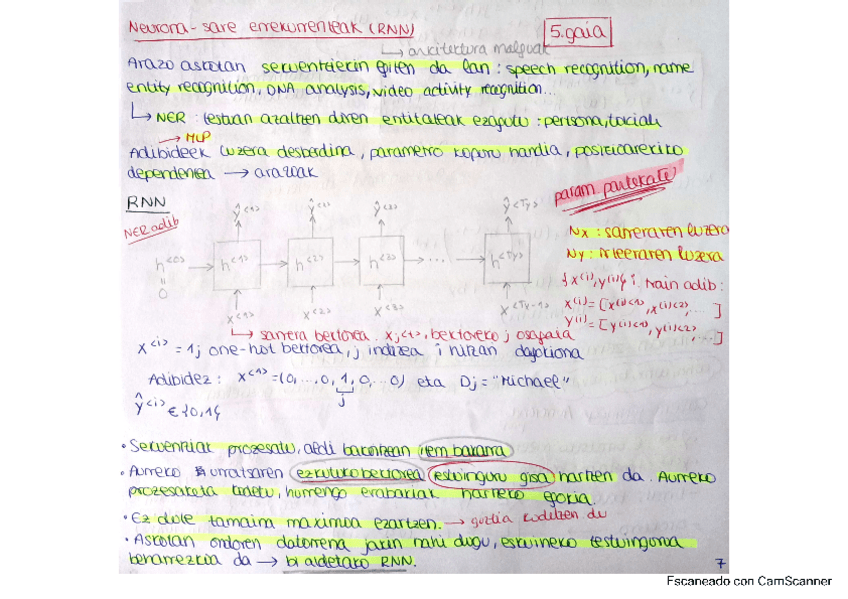 Neurona-sare errekurrenteak (RNN)
5.gaia
↳ arkitektura malguak
Arazo askotan sekuentziekin egiten da lan: speech recognition, name
entity recognition, DNA analysis, video activity recognition...
↳ NER: testuan azaltzen diren entitateak ezagutu: pertsona, tokiak
→ MLP
Adibideek luzera desberdina, parametro kopuru handia, posizioarekiko
dependentea → arazoak
param partekatu
RNN
NER adib
ŷ<1> ŷ<2> ŷ<3> ŷ<Ty>
h<0> → h<1> → h<2> → h<3> → ... → h<Ty>
0
x<1> x<2> x<3> x<Tx-1>
Nx: sarreraren luzera
Ny: irteeraren luzera
{x(i), y(i)} i. train adib:
x(i) = [x(i)<1>, x(i)<2>, ...]
y(i) = [y(i)<1>, y(i)<2>, ...]
↳ sarrera bektorea. xj<1>, bektoreko j osagaia
x<i> = 1j one-hot bektorea, j indizea i hitzan dagokiona
Adibidez: x<1> = (0,...,0,1,0,...0) eta Dj = "Michael"
j
ŷ<i> ∈ {0,1}
• Sekuentziak prozesatu, aldi bakoitzean item bakarra
• Aurreko urratsaren ezkutuko bektorea testuinguru gisa hartzen da. Aurreko
prozesaketa kodetu, hurrengo erabakiak hartzeko egokia.
• Ez dute tamaina maximoa ezartzen. → guztia kodetzen du
• Askotan ondoren datorrena jakin nahi dugu, eskuineko testuingurua
beharrezkoa da → bi aldetako RNN.
7
Escaneado con CamScanner